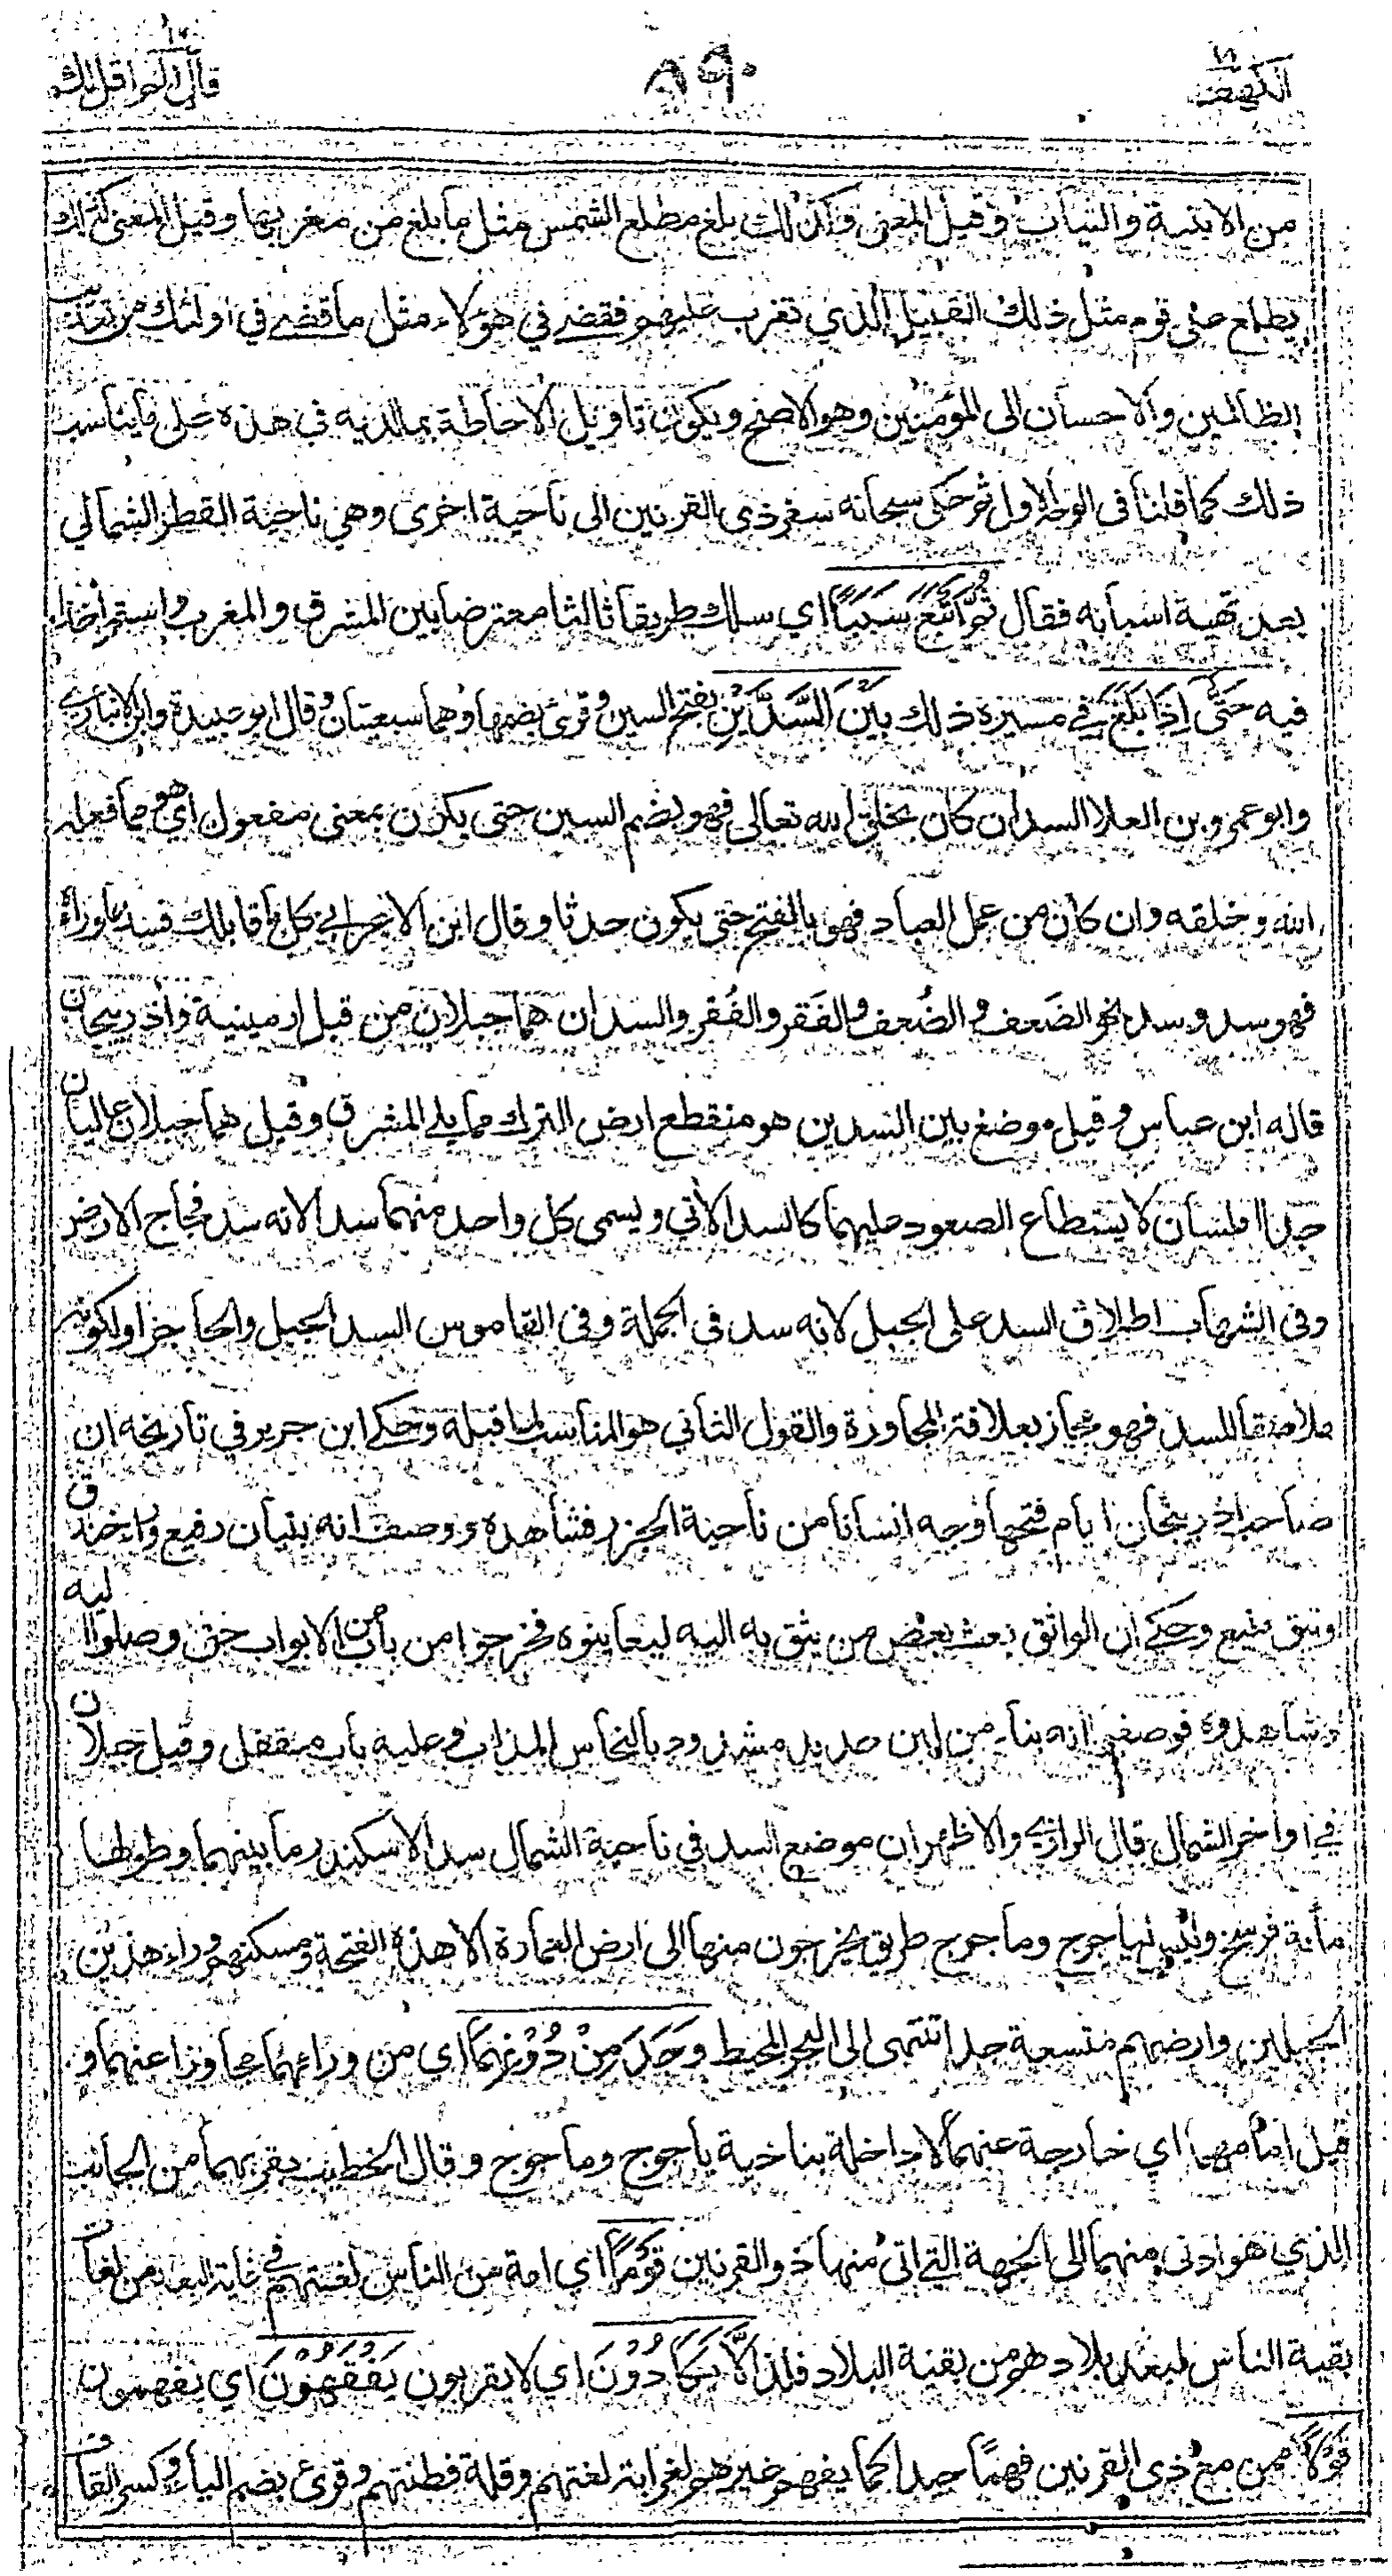 الكهف ١٨
٨٩٠
قال الم اقل لك ١٦
من الابنية والثياب وقيل المعنى وكذلك بلغ مطلع الشمس مثل ما بلغ من مغربها وقيل المعنى كذلك
يطلع على قوم مثل ذلك القبيل الذي تغرب عليهم فقضى في هؤلاء مثل ما قضى في اولئك من تعذيب
الظالمين والاحسان الى المؤمنين وهو الاصح ويكون تاويل الاحاطة بما لديه في هذه على ما يناسب
ذلك كما قلنا في الوجه الاول ثم حكى سبحانه سفر ذي القرنين الى ناحية اخرى وهي ناحية القطر الشمالي
بعد تهيئة اسبابه فقال ثُمَّ اَتْبَعَ سَبَبًا اي سلك طريقا ثالثا معترضا بين المشرق والمغرب واستمر اخذا
فيه حَتَّى اِذَا بَلَغَ في مسيره ذلك بَيْنَ السَّدَّيْنِ بفتح السين وقرئ بضمها وهما سبعيتان وقال ابو عبيدة وابن الانباري
وابو عمرو بن العلا السد ان كان بخلق الله تعالى فهو بضم السين حتى يكون بمعنى مفعول اي هو مما فعله
الله وخلقه وان كان من عمل العباد فهو بالفتح حتى يكون حدثا وقال ابن الاعرابي كل ما قابلك فسد ما وراءه
فهو سد وسد نحو الضَعف والضُعف والفَقر والفُقر والسدان هما جبلان من قبل ارمينية واذربيجان
قاله ابن عباس وقيل موضع بين السدين هو منقطع ارض الترك مما يلي المشرق وقيل هما جبلان عاليان
جدا املسان لا يستطاع الصعود عليهما كالسد الآتي ويسمى كل واحد منهما سدا لانه سد فجاج الارض
وفي الشهاب اطلاق السد على الجبل لانه سد في الجملة وفي القاموس السد الجبل والحاجز او لكونه
ملاصقا للسد فهو مجاز بعلاقة المجاورة والقول الثاني هو المناسب لما قبله وحكى ابن جرير في تاريخه ان
صاحب اذربيجان ايام فتحها وجه انسانا من ناحية الخزر فشاهده ووصف انه بنيان رفيع وراء خندق
وثيق منيع وحكى ان الواثق بعث بعض من يثق به اليه ليعاينوه فخرجوا من باب الابواب حتى وصلوا اليه
وشاهدوه فوصفوا انه بناء من لبن حديد مشدود بالنحاس المذاب وعليه باب مقفل وقيل جبلان
في اواخر الشمال قال الرازي والاظهر ان موضع السد في ناحية الشمال سد الاسكندر ما بينهما وطولها
مائة فرسخ وليس لياجوج وماجوج طريق يخرجون منها الى ارض العمارة الا هذه الفتحة ومسكنهم وراء هذين
الجبلين وارضهم متسعة جدا تنتهي الى البحر المحيط وَجَدَ مِنْ دُوْنِهِمَا اي من ورائهما مجاوزا عنهما و
قيل امامهما اي خارجة عنهما لا داخلة بناحية ياجوج وماجوج وقال الخطيب بقربهما من الجانب
الذي هو ادنى منهما الى الجهة التي اتى منها ذو القرنين قَوْمًا اي امة من الناس لغتهم في غاية البعد من لغات
بقية الناس لبعد بلادهم من بقية البلاد فلذا لَّا يَكَادُوْنَ اي لا يقربون يَفْقَهُوْنَ اي يفهمون
قَوْلًا ممن مع ذي القرنين فهما جيدا كما يفهم غيرهم لغرابة لغتهم وقلة فطنتهم وقرئ بضم الياء وكسر القاف